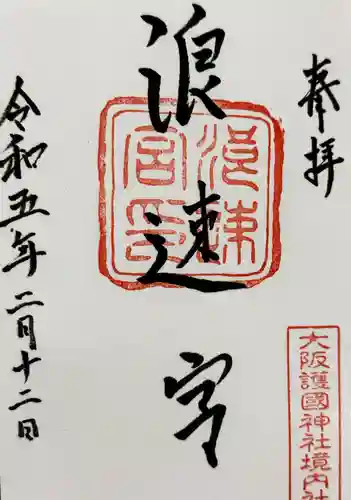 奉拝
浪速宮
浪速宮印
大阪護國神社境内社
令和五年二月十二日